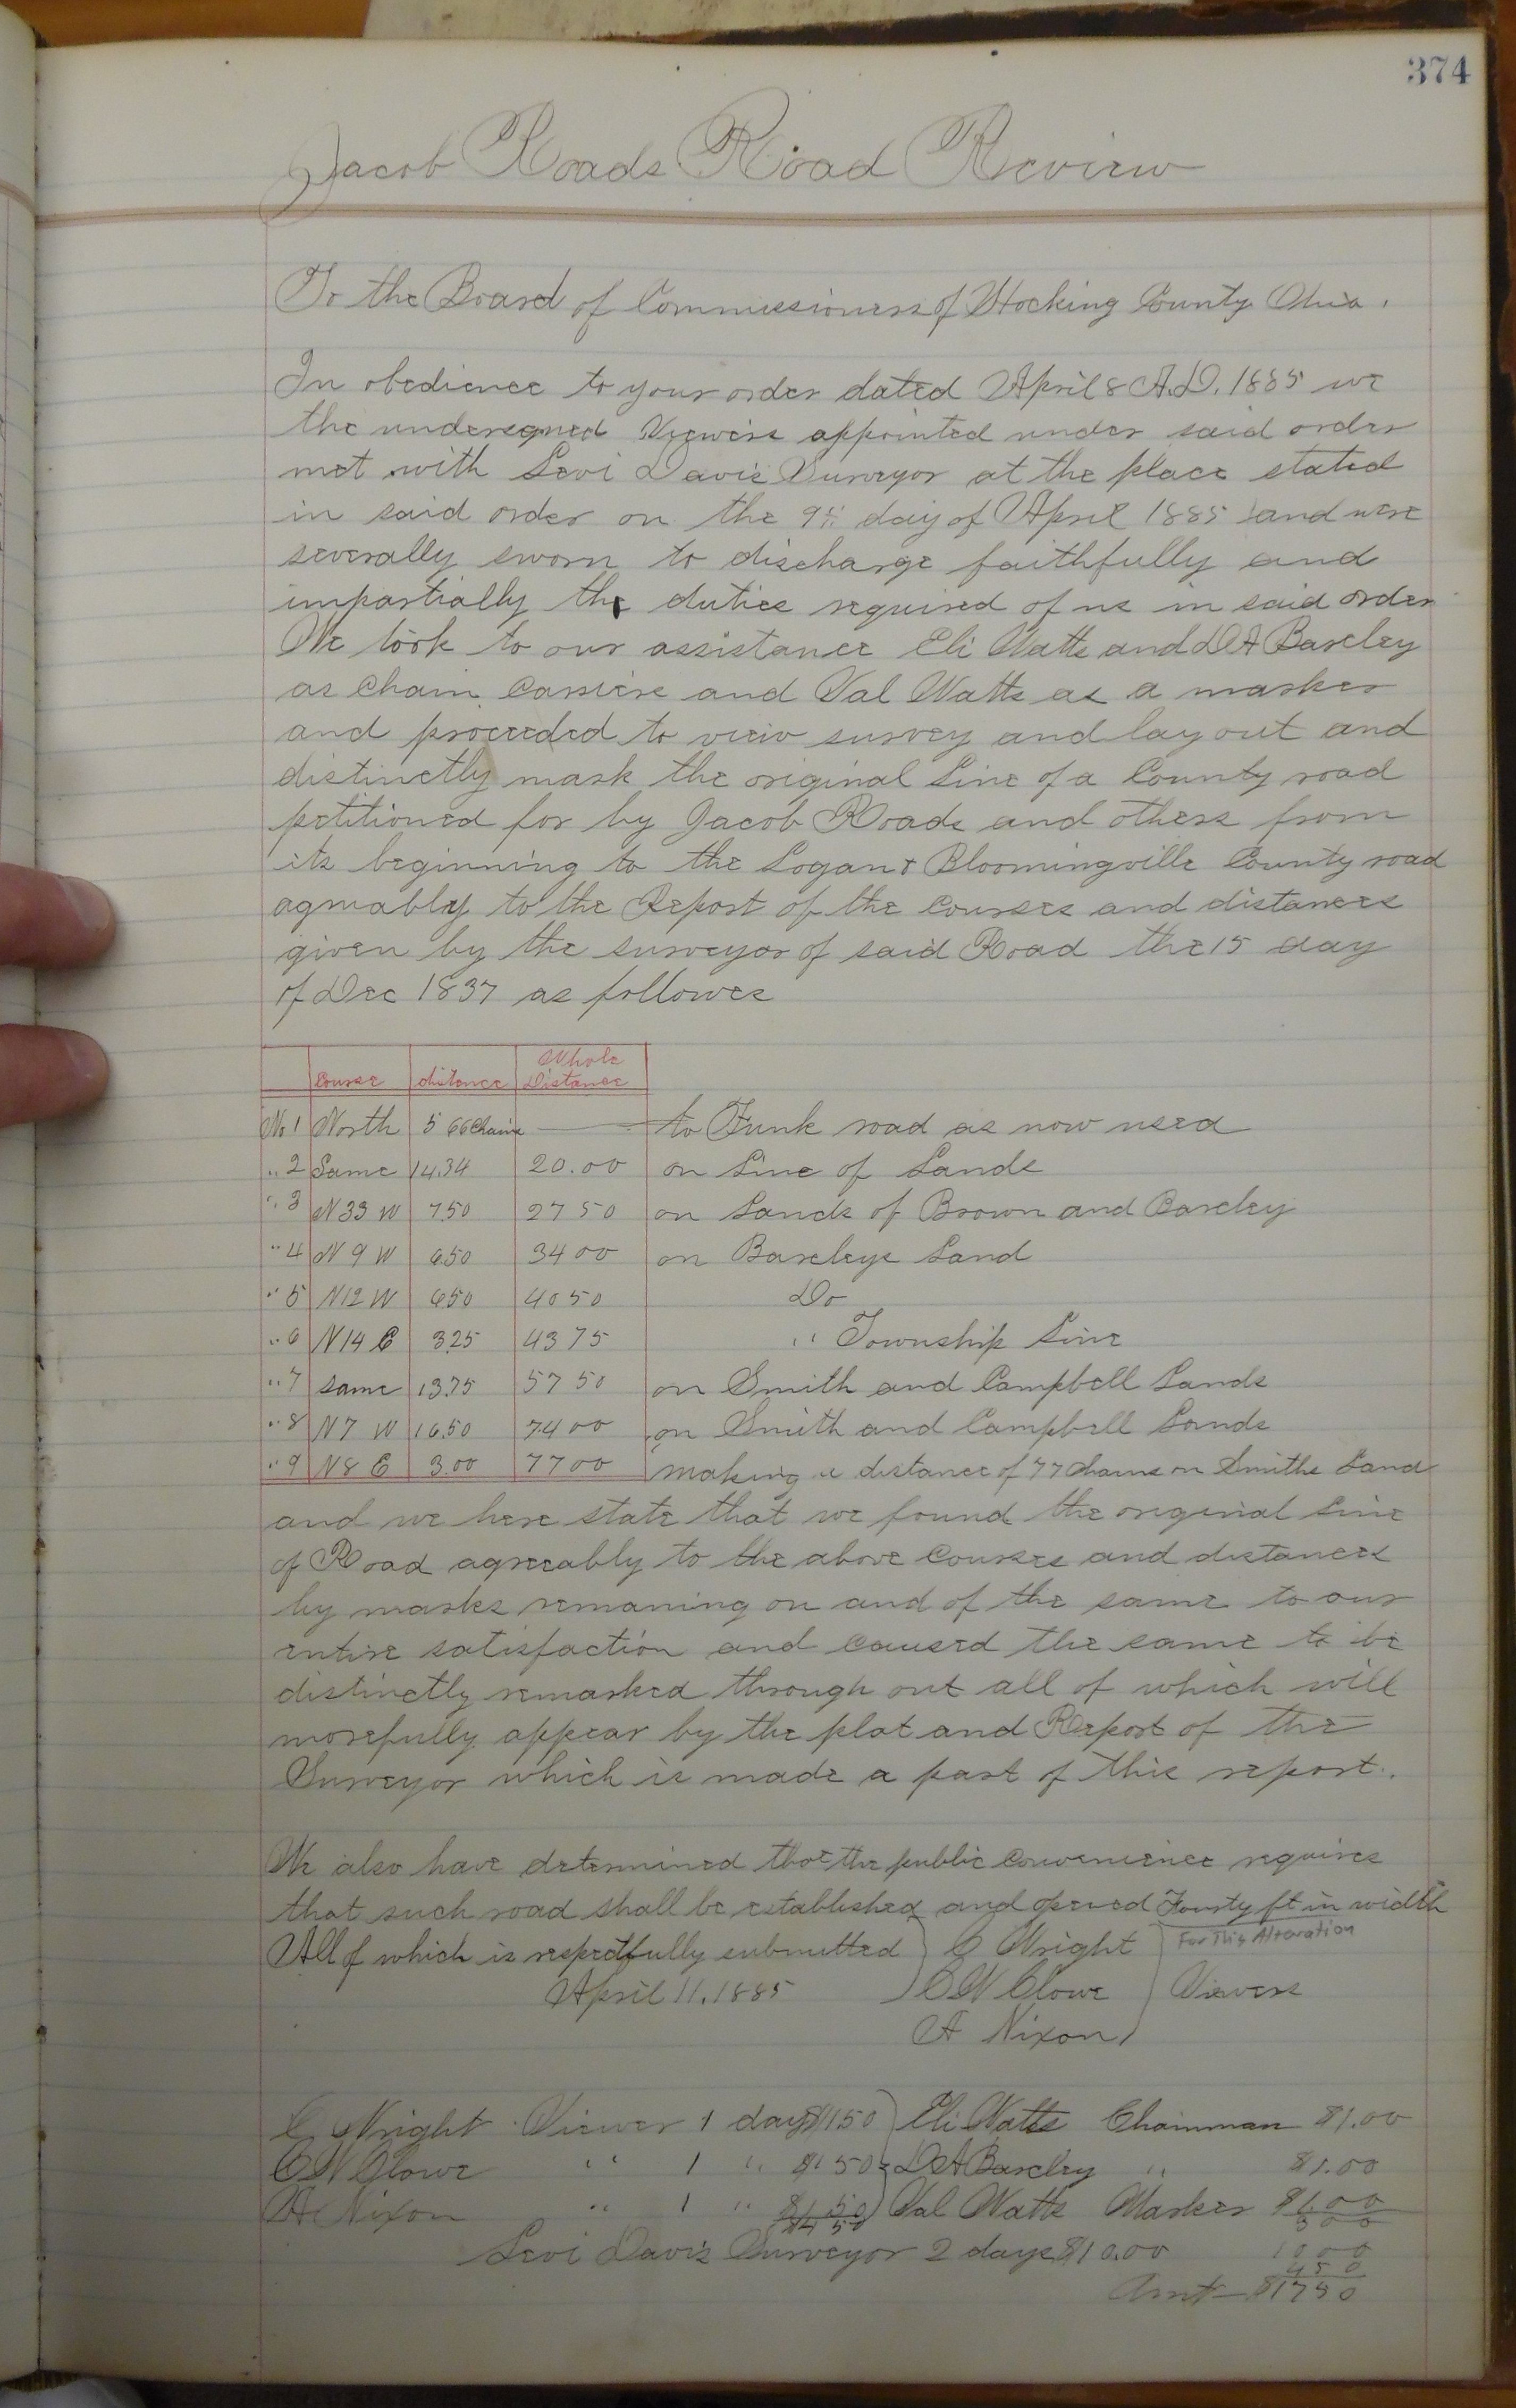 374
Jacob Roads Road Review
To the Board of Commissioners of Hocking County Ohio.
In obedience to your order dated April 8 A.D. 1885 we
the undersigned Viewers appointed under said order
met with Levi Davis Surveyor at the place stated
in said order on the 9th day of April 1885 and were
severally sworn to discharge faithfully and
impartially the duties required of us in said order
We took to our assistance Eli Watts and D A Barcley
as Chain Carriers and Val Watts as a marker
and proceeded to view survey and lay out and
distinctly mark the original Line of a County road
petitioned for by Jacob Roads and others from
its beginning to the Logan & Bloomingville County road
agreeably to the Report of the Courses and distances
given by the surveyor of said Road the 15 day
of Dec 1837 as followes
Course distance Whole Distance
No 1 North 5 66 Chains to Funk road as now used
" 2 Same 14.34 20.00 on Line of Lands
" 3 N 33 W 7.50 27 50 on Lands of Brown and Barcley
" 4 N 9 W 6.50 34 00 on Barcleys Land
" 5 N 12 W 6.50 40 50 Do
" 6 N 14 E 3.25 43 75 " Township Line
" 7 same 13.75 57 50 on Smith and Campbell Lands
" 8 N 7 W 16.50 74 00 on Smith and Campbell Lands
" 9 N 8 E 3.00 77 00 making a distance of 77 Chains on Smiths Land
and we here state that we found the original Line
of Road agreeably to the above Courses and distances
by marks remaning on and of the same to our
entire satisfaction and caused the same to be
distinctly remarked through out all of which will
morefully appear by the plat and Report of the
Surveyor which is made a part of this report.
We also have determined that the public Convenience requires
that such road shall be established and opened Fourty ft in width
For This Alteration
All of which is respectfully submitted C Wright
April 11. 1885 C W Clowe Viewers
A Nixon
C Wright Viewer 1 day $1 50 Eli Watts Chainman $1.00
C W Clowe " 1 " $1 50 D A Barcley " $1.00
A Nixon " 1 " $1 50 Val Watts Marker $1.00
$4 50 3 00
Levi Davis Surveyor 2 days $10.00 10 00
4 5 0
Amt $17 50